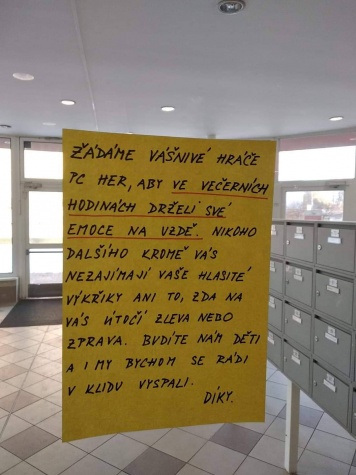 ŽÁDÁME VÁŠNIVÉ HRÁČE
PC HER, ABY VE VEČERNÍCH
HODINÁCH DRŽELI SVÉ
EMOCE NA UZDĚ. NIKOHO
DALŠÍHO KROMĚ VÁS
NEZAJÍMAJÍ VAŠE HLASITÉ
VÝKŘIKY ANI TO, ZDA NA
VÁS ÚTOČÍ ZLEVA NEBO
ZPRAVA. BUDÍTE NÁM DĚTI
A I MY BYCHOM SE RÁDI
V KLIDU VYSPALI.
DÍKY.